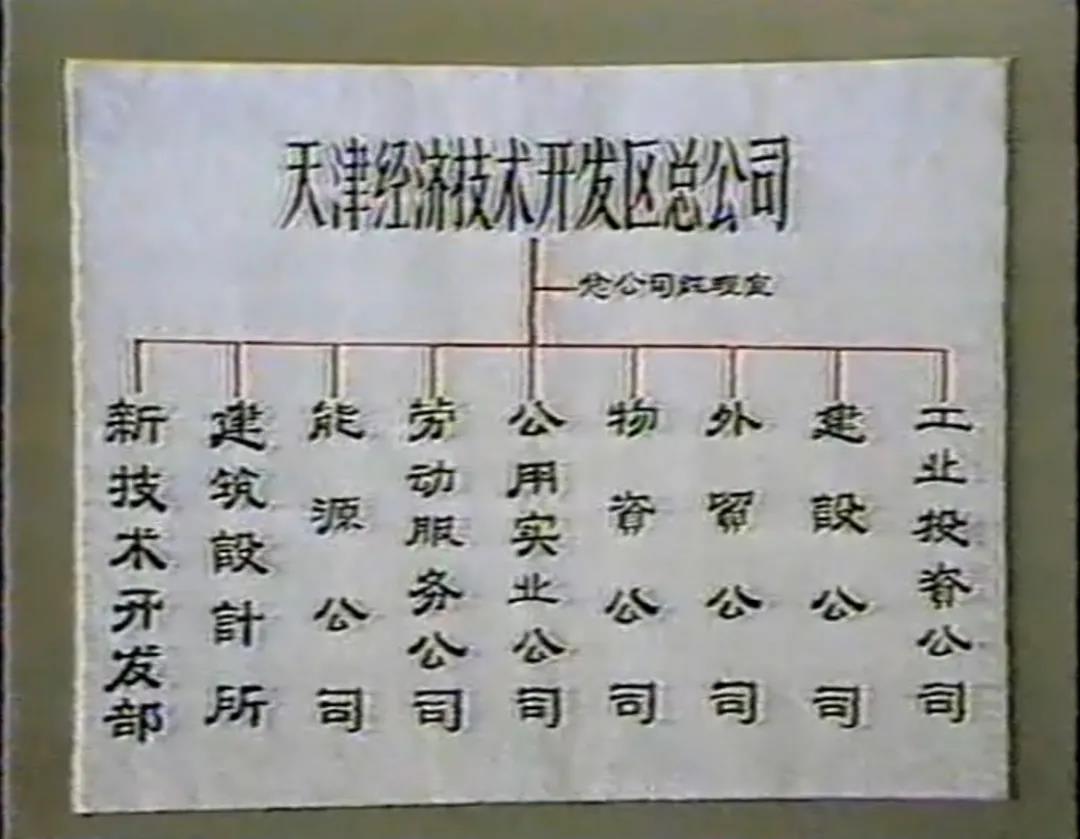 天津经济技术开发区总公司
总公司经理室
新技术开发部
建筑設計所
能源公司
劳动服务公司
公用实业公司
物資公司
外貿公司
建設公司
工业投資公司